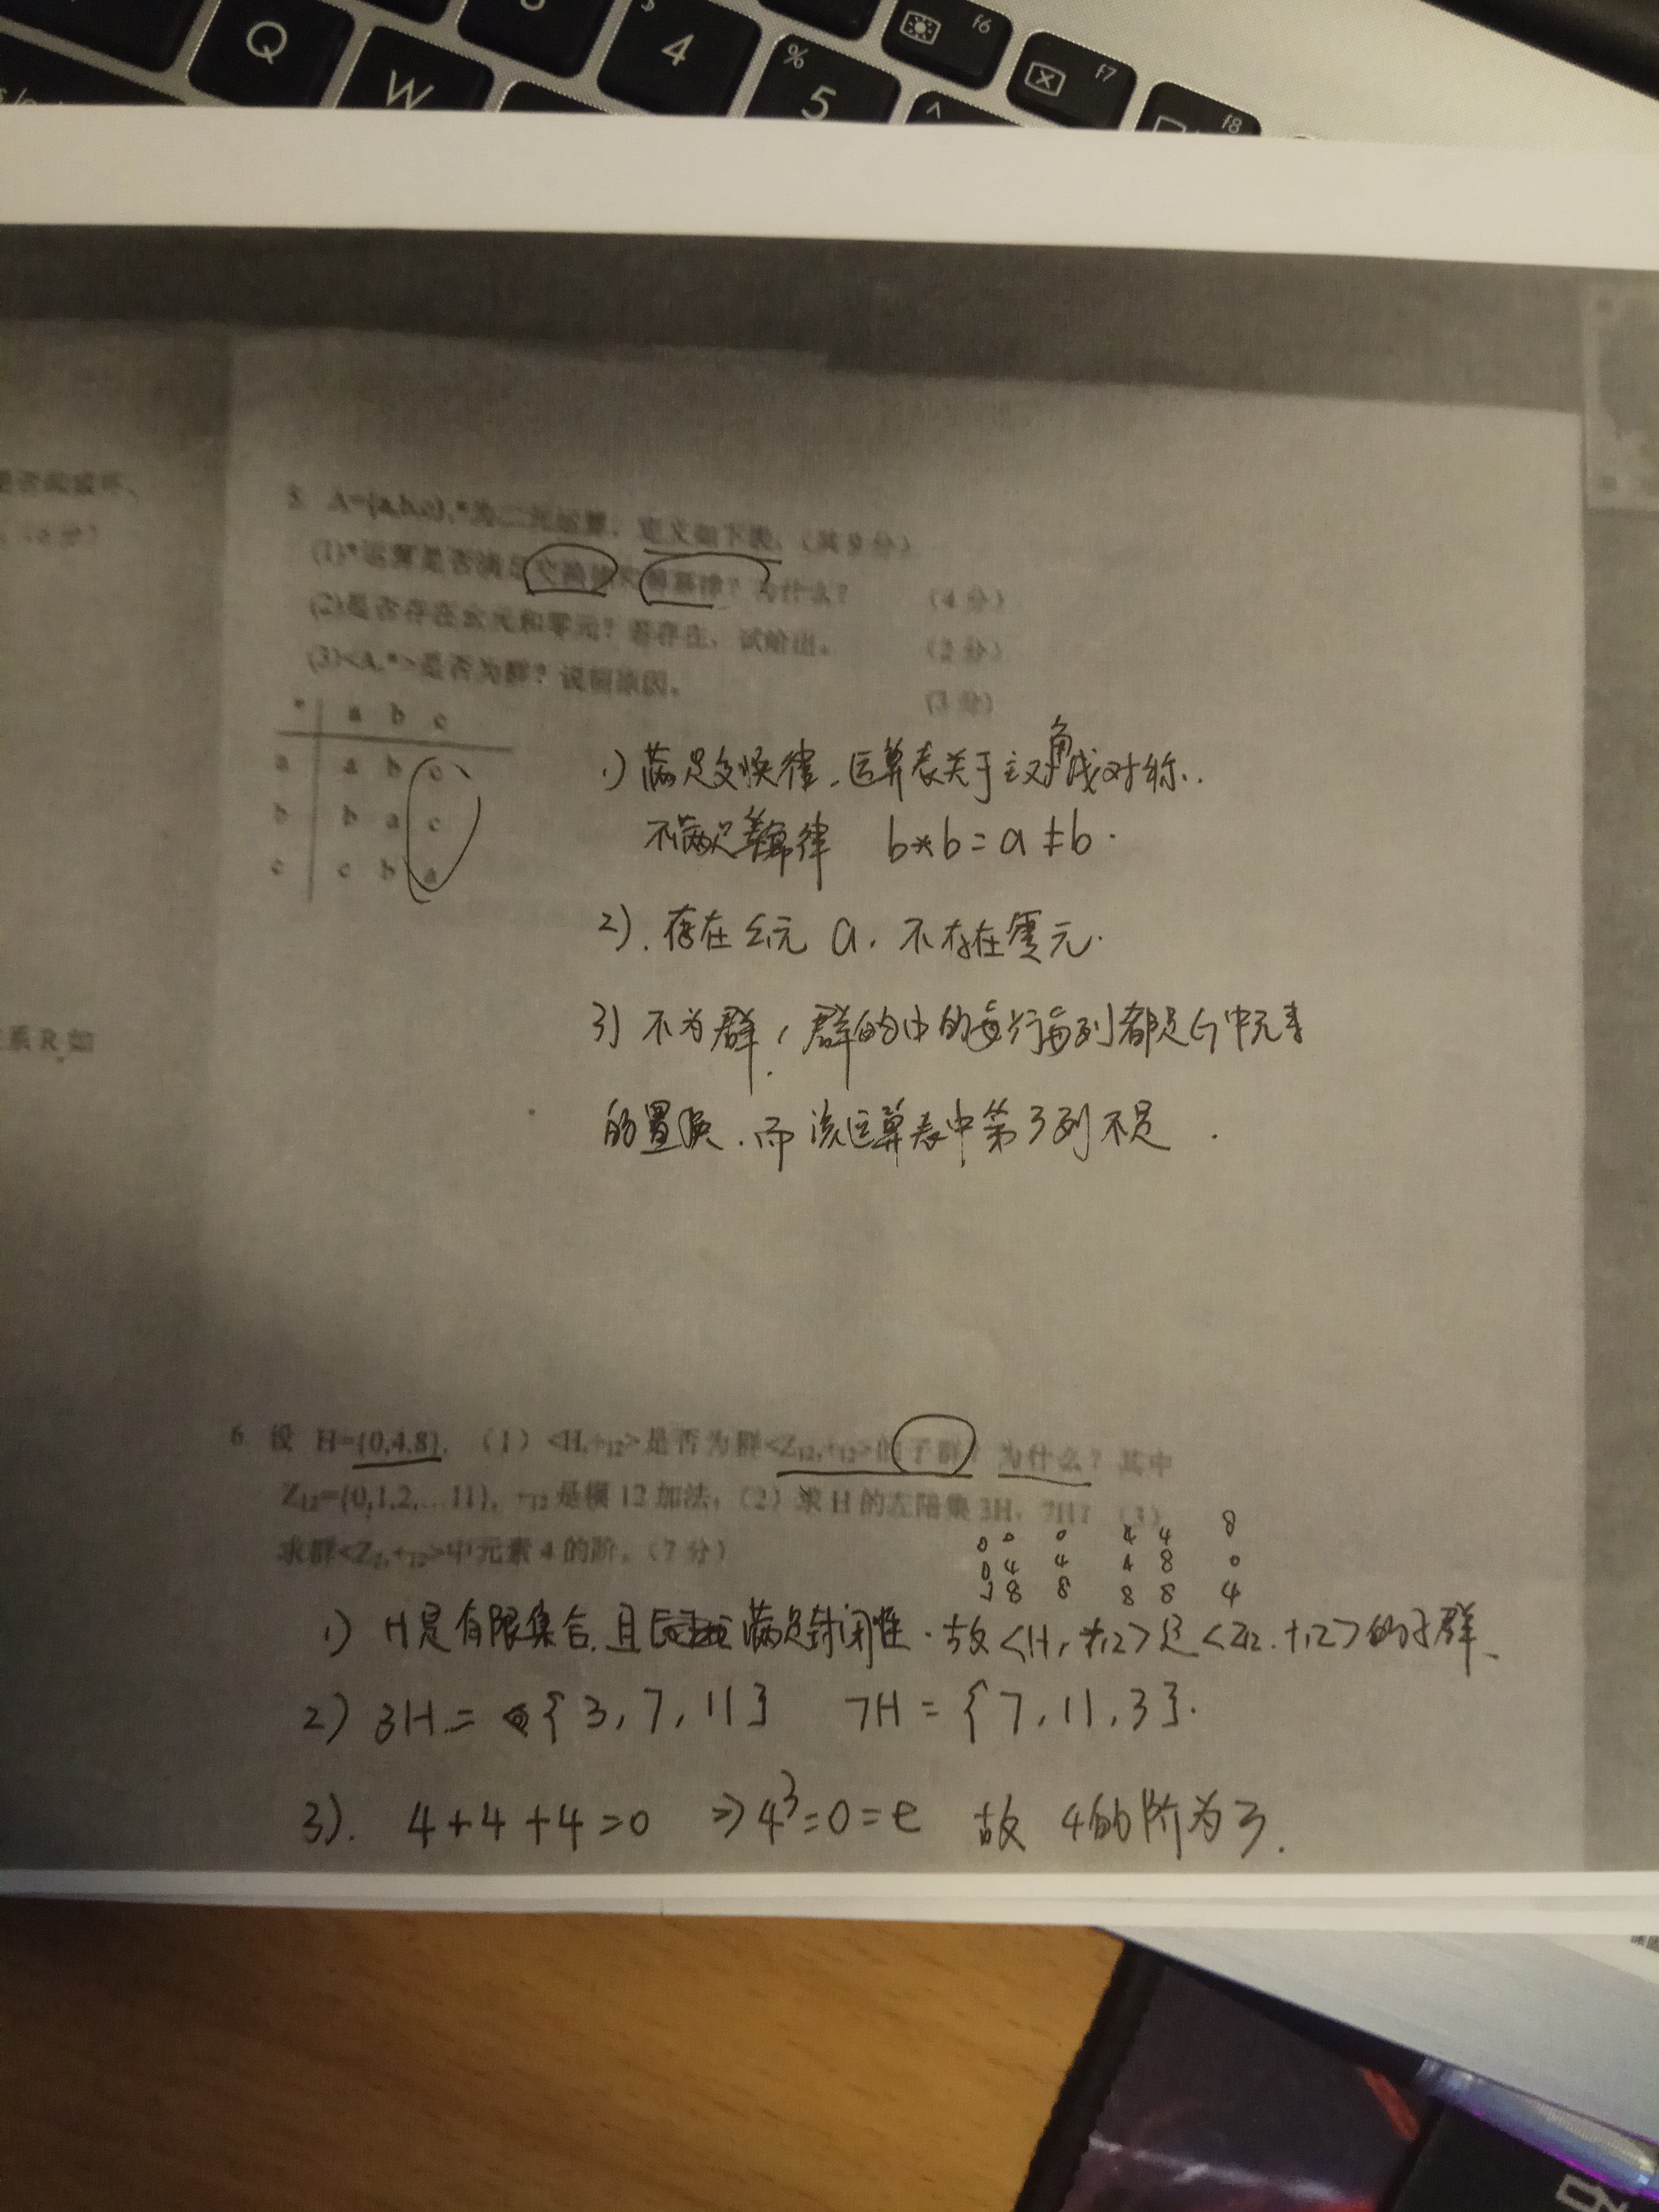 Q
W
$ 4
% 5
^
f6
f7
f8
是否
系R如
5. A={a,b,c},*为二元运算,定义如下表。(共9分)
(1)*运算是否满足交换律和等幂律?为什么? (4分)
(2)是否存在幺元和零元?若存在,试给出。 (2分)
(3)<A,*>是否为群?说明原因。 (3分)
* a b c
a a b c
b b a c
c c b a
1) 满足交换律,运算表关于主对角线对称.
不满足等幂律 b*b=a≠b.
2). 存在幺元 a. 不存在零元.
3) 不为群,群的中的每行每列都是G中元素
的置换.而该运算表中第3列不是.
6. 设 H={0,4,8}, (1)<H,+₁₂>是否为群<Z₁₂,+₁₂>的子群?为什么?其中
Z₁₂={0,1,2,…11}, +₁₂是模12加法;(2)求H的左陪集3H,7H?(3)
求群<Z₁₂,+₁₂>中元素4的阶。(7分)
0 0 0 4 4 8
0 4 4 4 8 0
8 8 8 8 4
1) H是有限集合.且满足封闭性.故<H,+12>是<Z12.+12>的子群.
2) 3H={3,7,11} 7H={7,11,3}.
3). 4+4+4=0 ⇒4³=0=e 故 4的阶为3.